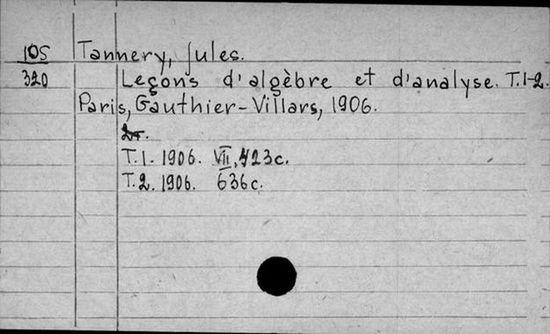 105 Tannery, Jules.
320 Leçons d'algèbre et d'analyse. T.1-2.
Paris, Gauthier-Villars, 1906.
2т.
T.1. 1906. VII, 423c.
T.2. 1906. 636c.